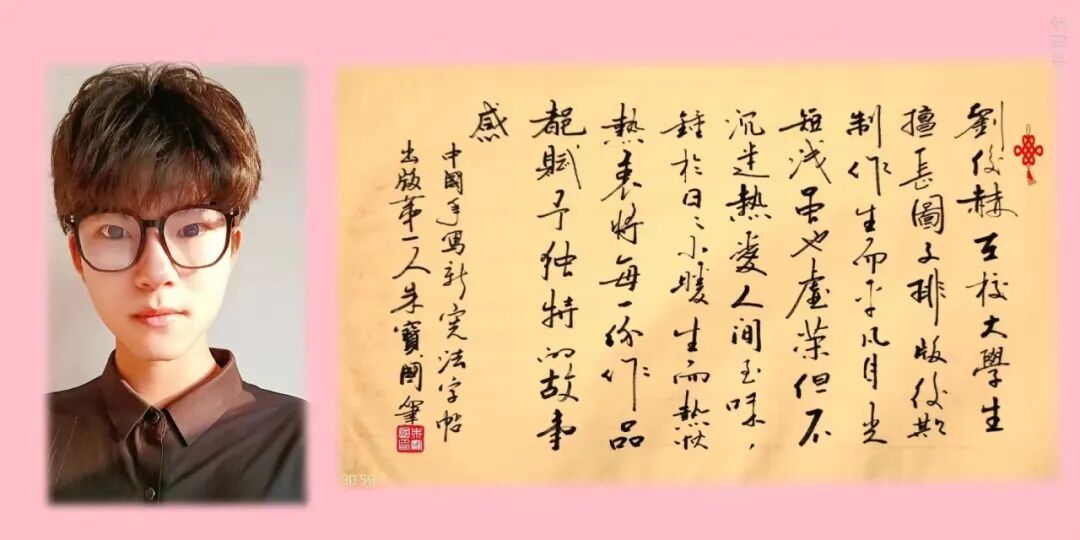 劉俊赫在校大學生
擅長圖文排版後期
制作生而平凡目光
短浅虽也虚荣但不
沉迷熱愛人间至味，
鍾於日々小暖生而熱忱
熱衷將每一份作品
都賦予独特的故事
感
中國手寫新憲法字帖
出版第一人朱寶國筆